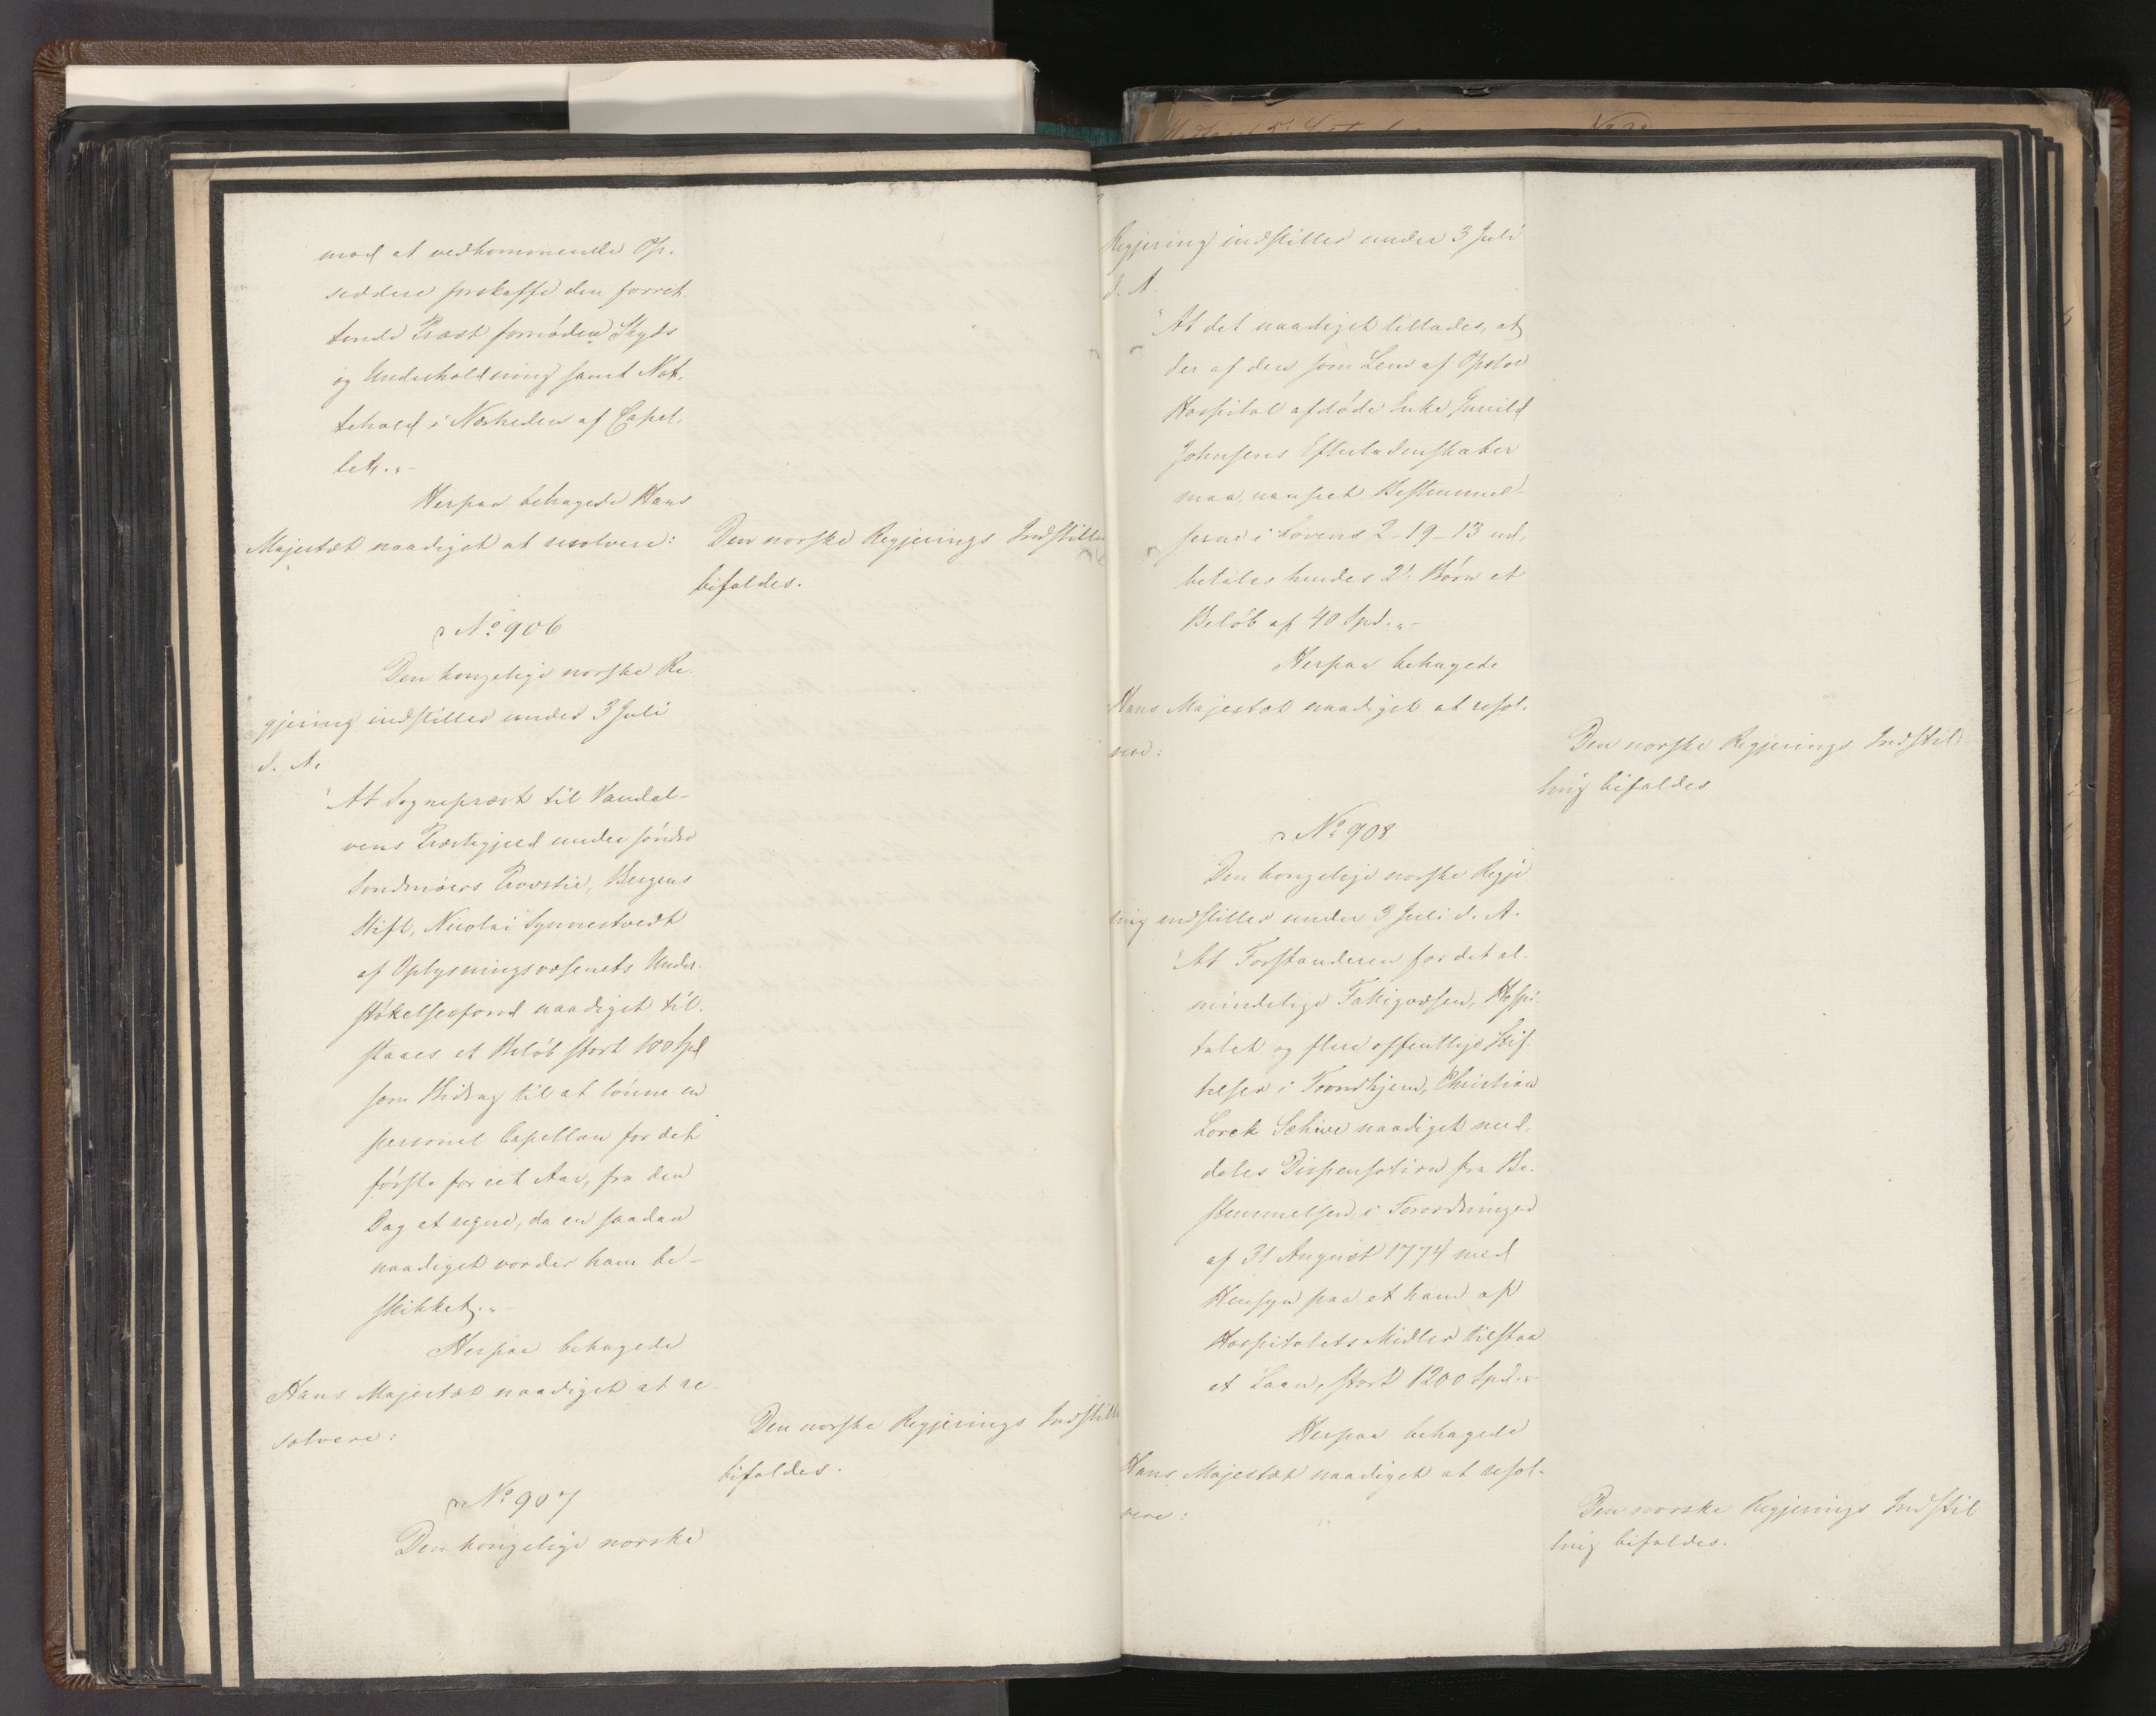 mod at vedkommende Op-
siddere forskaffe den forret-
tende Præst fornöden Skyds
og Underholdning samt Nat-
tehold i Nærheden af Capel-
let."-
Herpaa behagede Hans
Majestæt naadigst at resolvere:
Den norske Regjerings Indstilln
bifaldes.
No 906
Den kongelige norske Re-
gjering indstiller under 3 Juli
d. A.
"At Sognepræst til Vandel-
vens Præstegjeld under söndre
Söndmöers Provstie, Bergens
Stift, Nicolai Synnestvedt
af Oplysningsvæsenets Under-
stöttelsesfond naadigst til-
staaes et Belöb stort 100 Spd
som Bidrag til at lönne en
personel Capellan for det
förste for eet Aar, fra den
Dag at regne, da en saadan
naadigst vorder ham be-
skikket."-
Herpaa behagede
Hans Majestæt naadigst at re-
solvere:
Den norske Regjerings Indstill
bifaldes.
No 907
Den kongelige norske
Regjering indstiller under 3 Juli
d. A.
"At det naadigst tillades, at
der af den som Lem af Opsloe
Hospital afdöde Enke Gunild
Johnsens Efterladenskaber
maa, uanseet Bestemmel-
serne i Lovens 2-19-13 ud-
betales hendes 2de Börn et
Belöb af 40 Spd."-
Herpaa behagede
Hans Majestæt naadigst at resol-
vere:
Den norske Regjerings Indstil-
ling bifaldes
No 908
Den kongelige norske Regje
ring indstiller under 3 Juli d. A.
"At Forstanderen for det al-
mindelige Fattigvæsen, Hospi-
talet og flere offentlige Stif-
telser i Trondhjem, Christian
Lorck Schive naadigst med-
deles Dispensation fra Be-
stemmelsen i Forordningen
af 31 August 1774 med
Hensyn paa et ham af
Hospitalets Midler tilstaa
et Laan, stort 1200 Spd."-
Herpaa behagede
Hans Majestæt naadigst at resol-
vere:
Den norske Regjerings Indstil
ling bifaldes.